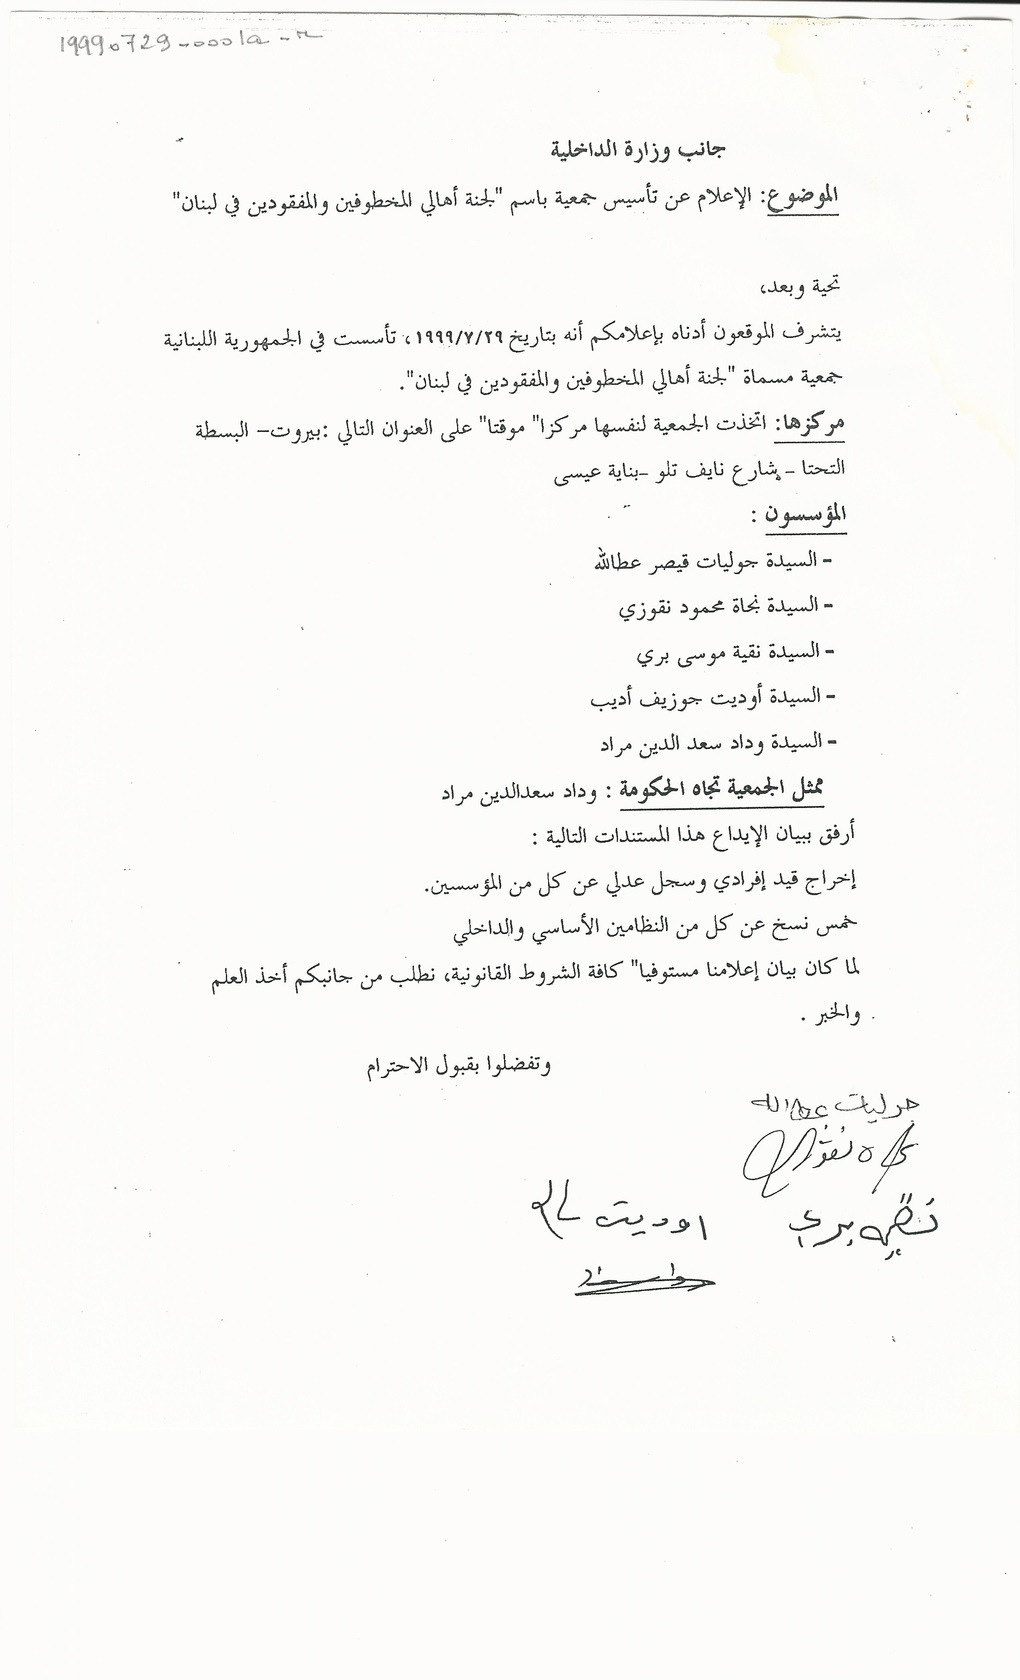 19990729-0001a-n
جانب وزارة الداخلية
الموضوع: الإعلام عن تأسيس جمعية باسم "لجنة أهالي المخطوفين والمفقودين في لبنان"
تحية وبعد،
يتشرف الموقعون أدناه بإعلامكم أنه بتاريخ ١٩٩٩/٧/٢٩، تأسست في الجمهورية اللبنانية
جمعية مسماة "لجنة أهالي المخطوفين والمفقودين في لبنان".
مركزها: اتخذت الجمعية لنفسها مركزا" موقتا" على العنوان التالي :بيروت– البسطة
التحتا – شارع نايف تلو –بناية عيسى
المؤسسون :
– السيدة جوليات قيصر عطالله
– السيدة نجاة محمود نقوزي
– السيدة نقية موسى بري
– السيدة أوديت جوزيف أديب
– السيدة وداد سعد الدين مراد
ممثل الجمعية تجاه الحكومة : وداد سعدالدين مراد
أرفق ببيان الإيداع هذا المستندات التالية :
إخراج قيد إفرادي وسجل عدلي عن كل من المؤسسين.
خمس نسخ عن كل من النظامين الأساسي والداخلي
لما كان بيان إعلامنا مستوفيا" كافة الشروط القانونية، نطلب من جانبكم أخذ العلم
والخبر .
وتفضلوا بقبول الاحترام
جوليات عطالله
بري
اوديت